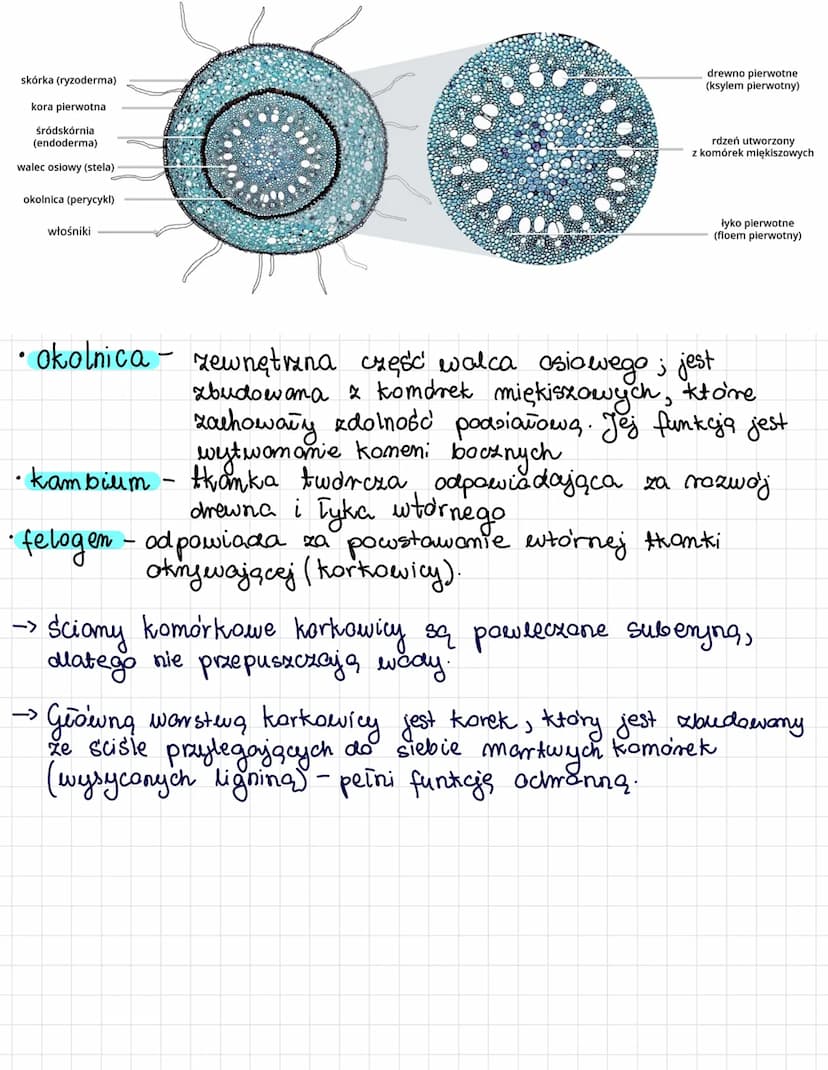 skórka (ryzoderma)
kora pierwotna
śródskórnia
(endoderma)
walec osiowy (stela)
okolnica (perycykl)
włośniki
drewno pierwotne
(ksylem pierwotny)
rdzeń utworzony
z komórek miękiszowych
łyko pierwotne
(floem pierwotny)
• okolnica - zewnętrzna część walca osiowego; jest
zbudowana z komórek miękiszowych, które
zachowały zdolność podziałową. Jej funkcją jest
wytwarzanie korzeni bocznych
• kambium - tkanka twórcza odpowiadająca za rozwój
drewna i łyka wtórnego
• felogen - odpowiada za powstawanie wtórnej tkanki
okrywającej (korkowicy).
→ Ściany komórkowe korkowicy są powleczone suberyną,
dlatego nie przepuszczają wody.
→ Główną warstwą korkowicy jest korek, który jest zbudowany
ze ściśle przylegających do siebie martwych komórek
(wysyconych ligniną) - pełni funkcję ochronną.